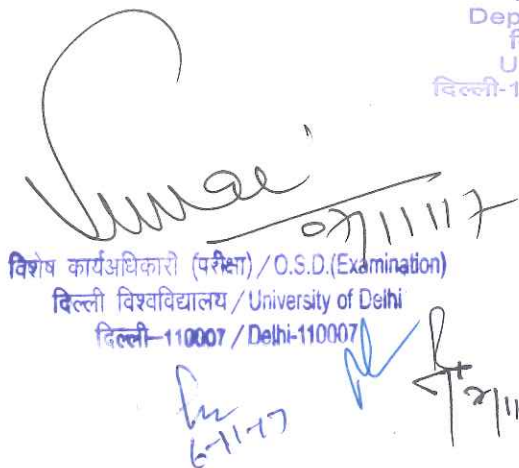 Dep
U
दिल्ली-1
07/11/17
विशेष कार्यअधिकारी (परीक्षा) / O.S.D.(Examination)
दिल्ली विश्वविद्यालय / University of Delhi
दिल्ली-110007 / Delhi-110007
6-11-17